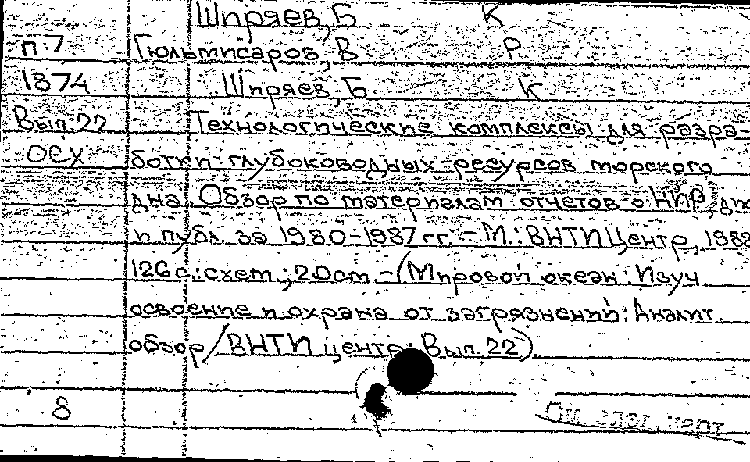 Шпряев, Б К
п.7 Гюльмисаров, В Р
1874 Шпряев, Б. К
Вып.22 Технологические комплексы для разра-
ОСУ ботки глубоководных ресурсов морского
дна: Обзор по материалам отчетов о НИР,
и публ. за 1980-1987 гг. - М.: ВНТИЦентр, 1988
126 с.: схем.; 20 см. - (Мировой океан: Изуч
освоение и охрана от загрязнений: Аналит.
обзор / ВНТИ центр; Вып. 22)
8